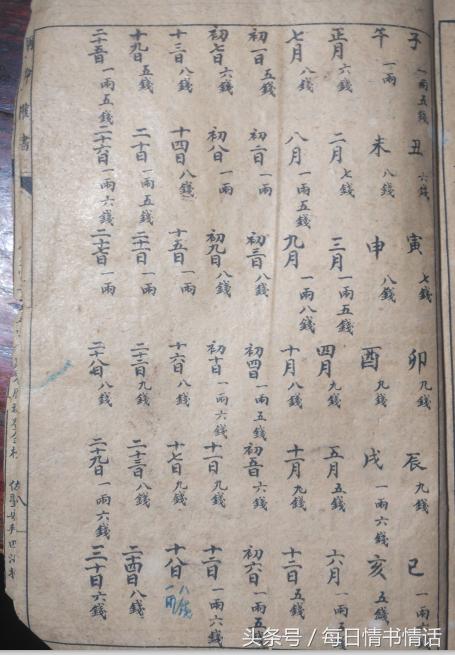 子 一兩五錢 丑 六錢 寅 七錢 卯 九錢 辰 九錢 巳 一兩
午 一兩 未 八錢 申 八錢 酉 九錢 戌 一兩六錢 亥 五錢
正月 六錢 二月 七錢 三月 一兩五錢 四月 九錢 五月 五錢 六月 一兩五
七月 八錢 八月 一兩五錢 九月 一兩八錢 十月 八錢 十一月 九錢 十二月 五錢
初一日 五錢 初二日 一兩 初三日 八錢 初四日 一兩五錢 初五日 六錢 初六日 一兩五
初七日 六錢 初八日 一兩 初九日 八錢 初十日 一兩六錢 十一日 九錢 十二日 一兩六錢
十三日 八錢 十四日 八錢 十五日 一兩 十六日 八錢 十七日 九錢 十八日 八錢
十九日 五錢 二十日 一兩五錢 二十一日 一兩 二十二日 九錢 二十三日 八錢 二十四日 八錢
二十五日 一兩五錢 二十六日 一兩六錢 二十七日 一兩 二十八日 八錢 二十九日 一兩六錢 三十日 六錢
头条号 / 每日情书情话